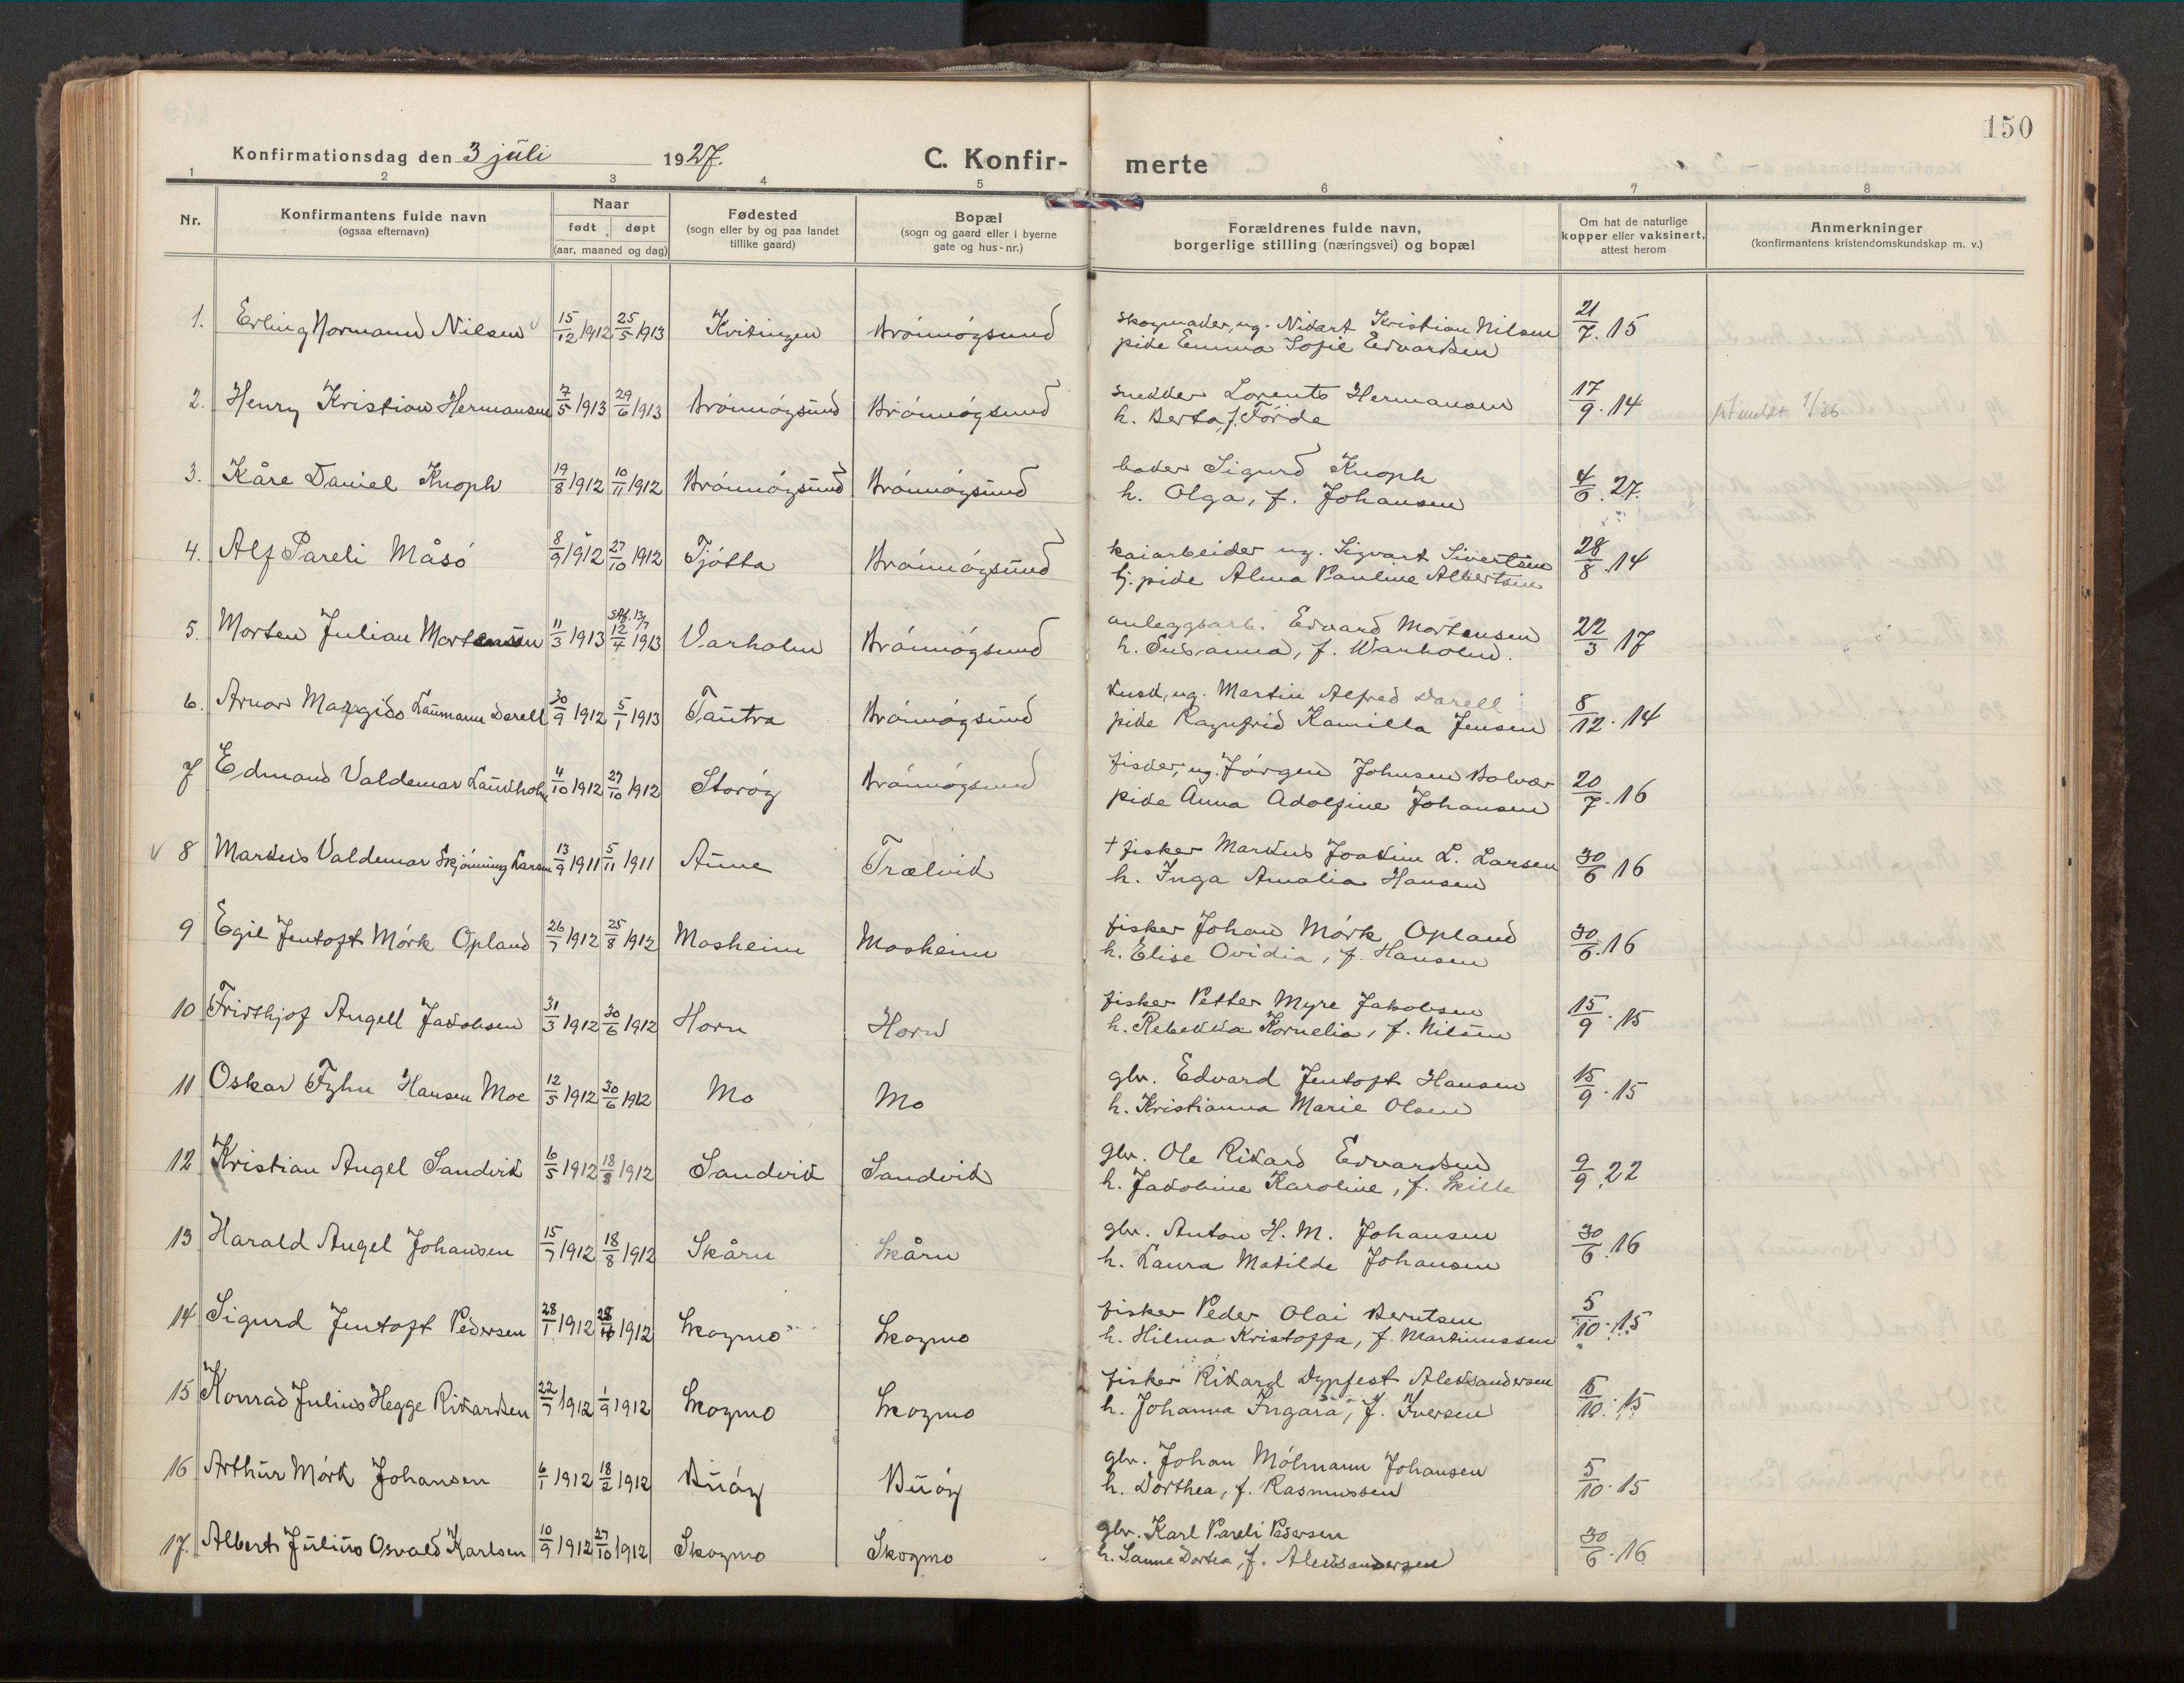 150
Konfirmationsdag den 3 júli 1927. C. Konfir- merte
1 2 3 4 5 6 7 8
Nr. Konfirmantens fulde navn (ogsaa efternavn) Naar født døpt (aar, maaned og dag) Fødested (sogn eller by og paa landet tillike gaard) Bopæl (sogn og gaard eller i byerne gate og hus-nr.) Forældrenes fulde navn, borgerlige stilling (næringsvei) og bopæl Om hat de naturlige kopper eller vaksinert, attest herom Anmerkninger (konfirmantens kristendomskundskap m. v.)
1. Erling Normann Nilsen 15/12 1912 25/5 1913 Kvitingen Brónnóysund skomaker, ug. Nikart Kristian Nilsen 21/7. 15
pike Emma Sofie Edvardsen
2. Henry Kristian Hermansen 7/5 1913 29/6 1913 Brónnóysund Brónnóysund snekker Lorents Hermansen 17/9. 14 1/36
h. Berta, f. Förde
3. Kåre Daniel Knoph 19/8 1912 10/11 1912 Brónnóysund Brónnóysund baker Sigurd Knoph 4/6. 27.
h. Olga, f. Johansen
4. Alf Pareli Måsó 8/9 1912 27/10 1912 Tjótta Brónnóysund kaiarbeider ug. Sigvart Sivertsen 28/8. 14
tj. pike Alma Pauline Albertsen
5. Morten Julian Mortensen 11/3 1913 12/4 1913 Stf. 13/7 Varholm Brónnóysund anleggsarb. Edvard Mortensen 22/3 17
h. Susanna, f. Warholm.
6. Arnor Maggido Laumann Darell 30/9 1912 5/1 1913 Tautra Brónnóysund kusk, ug. Martin Alfred Darell 8/12. 14
pike Ragnfrid Kamilla Jensen
7 Edmand Valdemar Laukholm 4/10 1912 27/10 1912 Storóy Brónnóysund fisker, ug. Jórgen Johnsen Bolvær 20/7. 16
pike Anna Adolfine Johansen
v 8 Markus Valdemar Skjónning Larsen 13/9 1911 5/11 1911 Aune Trælvik † fisker Markus Joakim L. Larsen 30/6 16
h. Inga Amalia Hansen
9 Egil Jentoft Mórk Opland 26/7 1912 25/8 1912 Mosheim Mosheim fisker Johan Mórk Opland 30/6. 16
h. Elise Ovidia, f. Hansen
10 Frithjof Angell Jakobsen 31/3 1912 30/6 1912 Horn Horn fisker Petter Myre Jakobsen 15/9. 15
h. Rebekka Kornelia, f. Nilsen
11 Oskar Fyhn Hansen Moe 12/5 1912 30/6 1912 Mo Mo gbr. Edvard Jentoft Hansen 15/9. 15
h. Kristianna Marie Olsen
12 Kristian Angel Sandvik 6/5 1912 18/8 1912 Sandvik Sandvik gbr. Ole Rikard Edvardsen 9/9. 22
h. Jakobine Karoline, f. Skille
13 Harald Angel Johansen 15/7 1912 18/8 1912 Skårn Skårn gbr. Anton H. M. Johansen 30/6. 16
h. Laura Matilde Johansen
14 Sigurd Jentoft Pedersen 28/1 1912 1912 Skogmo Skogmo fisker Peder Olai Berntsen 5/10. 15
h. Hilma Kristoffa, f. Martinussen
15 Konrad Julius Hegge Rikardsen 22/7 1912 1/9 1912 Skogmo Skogmo fisker Rikard Dypfest Aleksandersen 5/10. 15
h. Johanna Ingara, f. Iversen
16 Arthur Mórk Johansen 6/1 1912 18/2 1912 Buóy Buóy gbr. Johan Mólmann Johansen 5/10. 15
h. Dorthea, f. Rasmussen
17. Albert Július Osvald Karlsen 10/9 1912 27/10 1912 Skogmo Skogmo gbr. Karl Pareli Pedersen 30/6. 16
h. Sanna Dortea, f. Aleksandersen